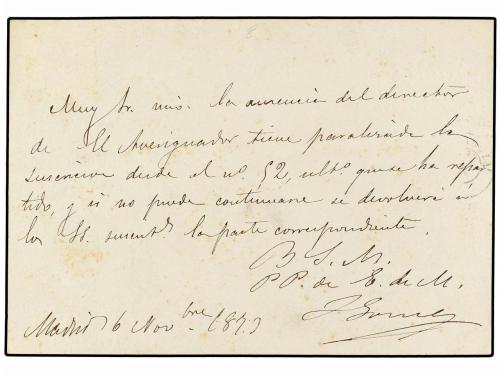 Muy Sr. mio: la ausencia del director
de El Averiguador tiene paralizada la
suscricion desde el nº. 52, ultº. que se ha repar
tido, y si no puede continuarse se devolverá á
los SS. suscrits la parte correspondiente.
B. S. M.
P.P. de E. de M.
J. Gomez
Madrid 6 Novbre 1873